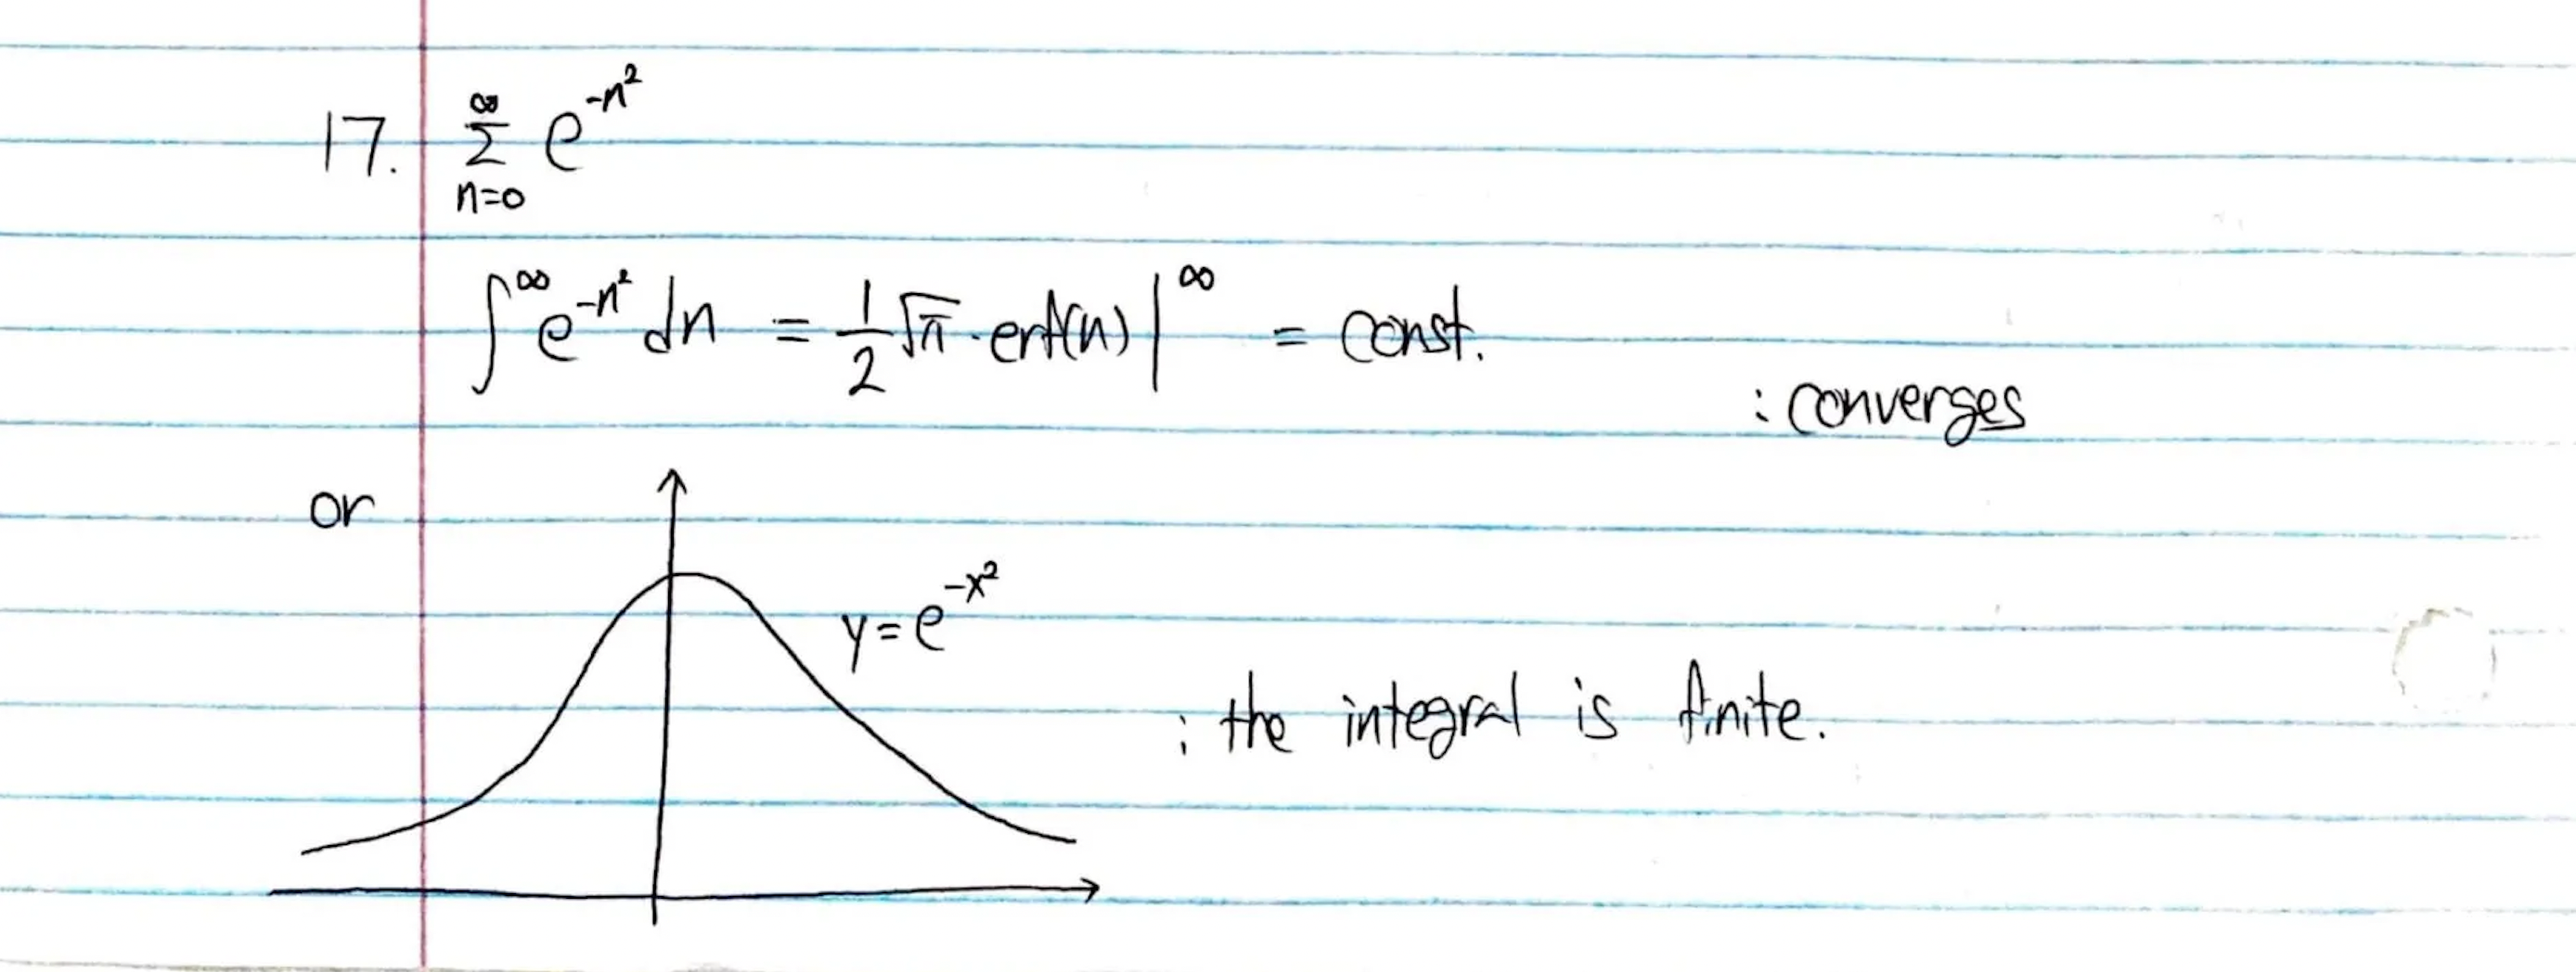 17. ∑_{n=0}^{∞} e^{-n²}
∫^∞ e^{-n²} dn = 1/2 √π · erf(n) |^∞ = const.
: converges
or
y = e^{-x²}
: the integral is finite.